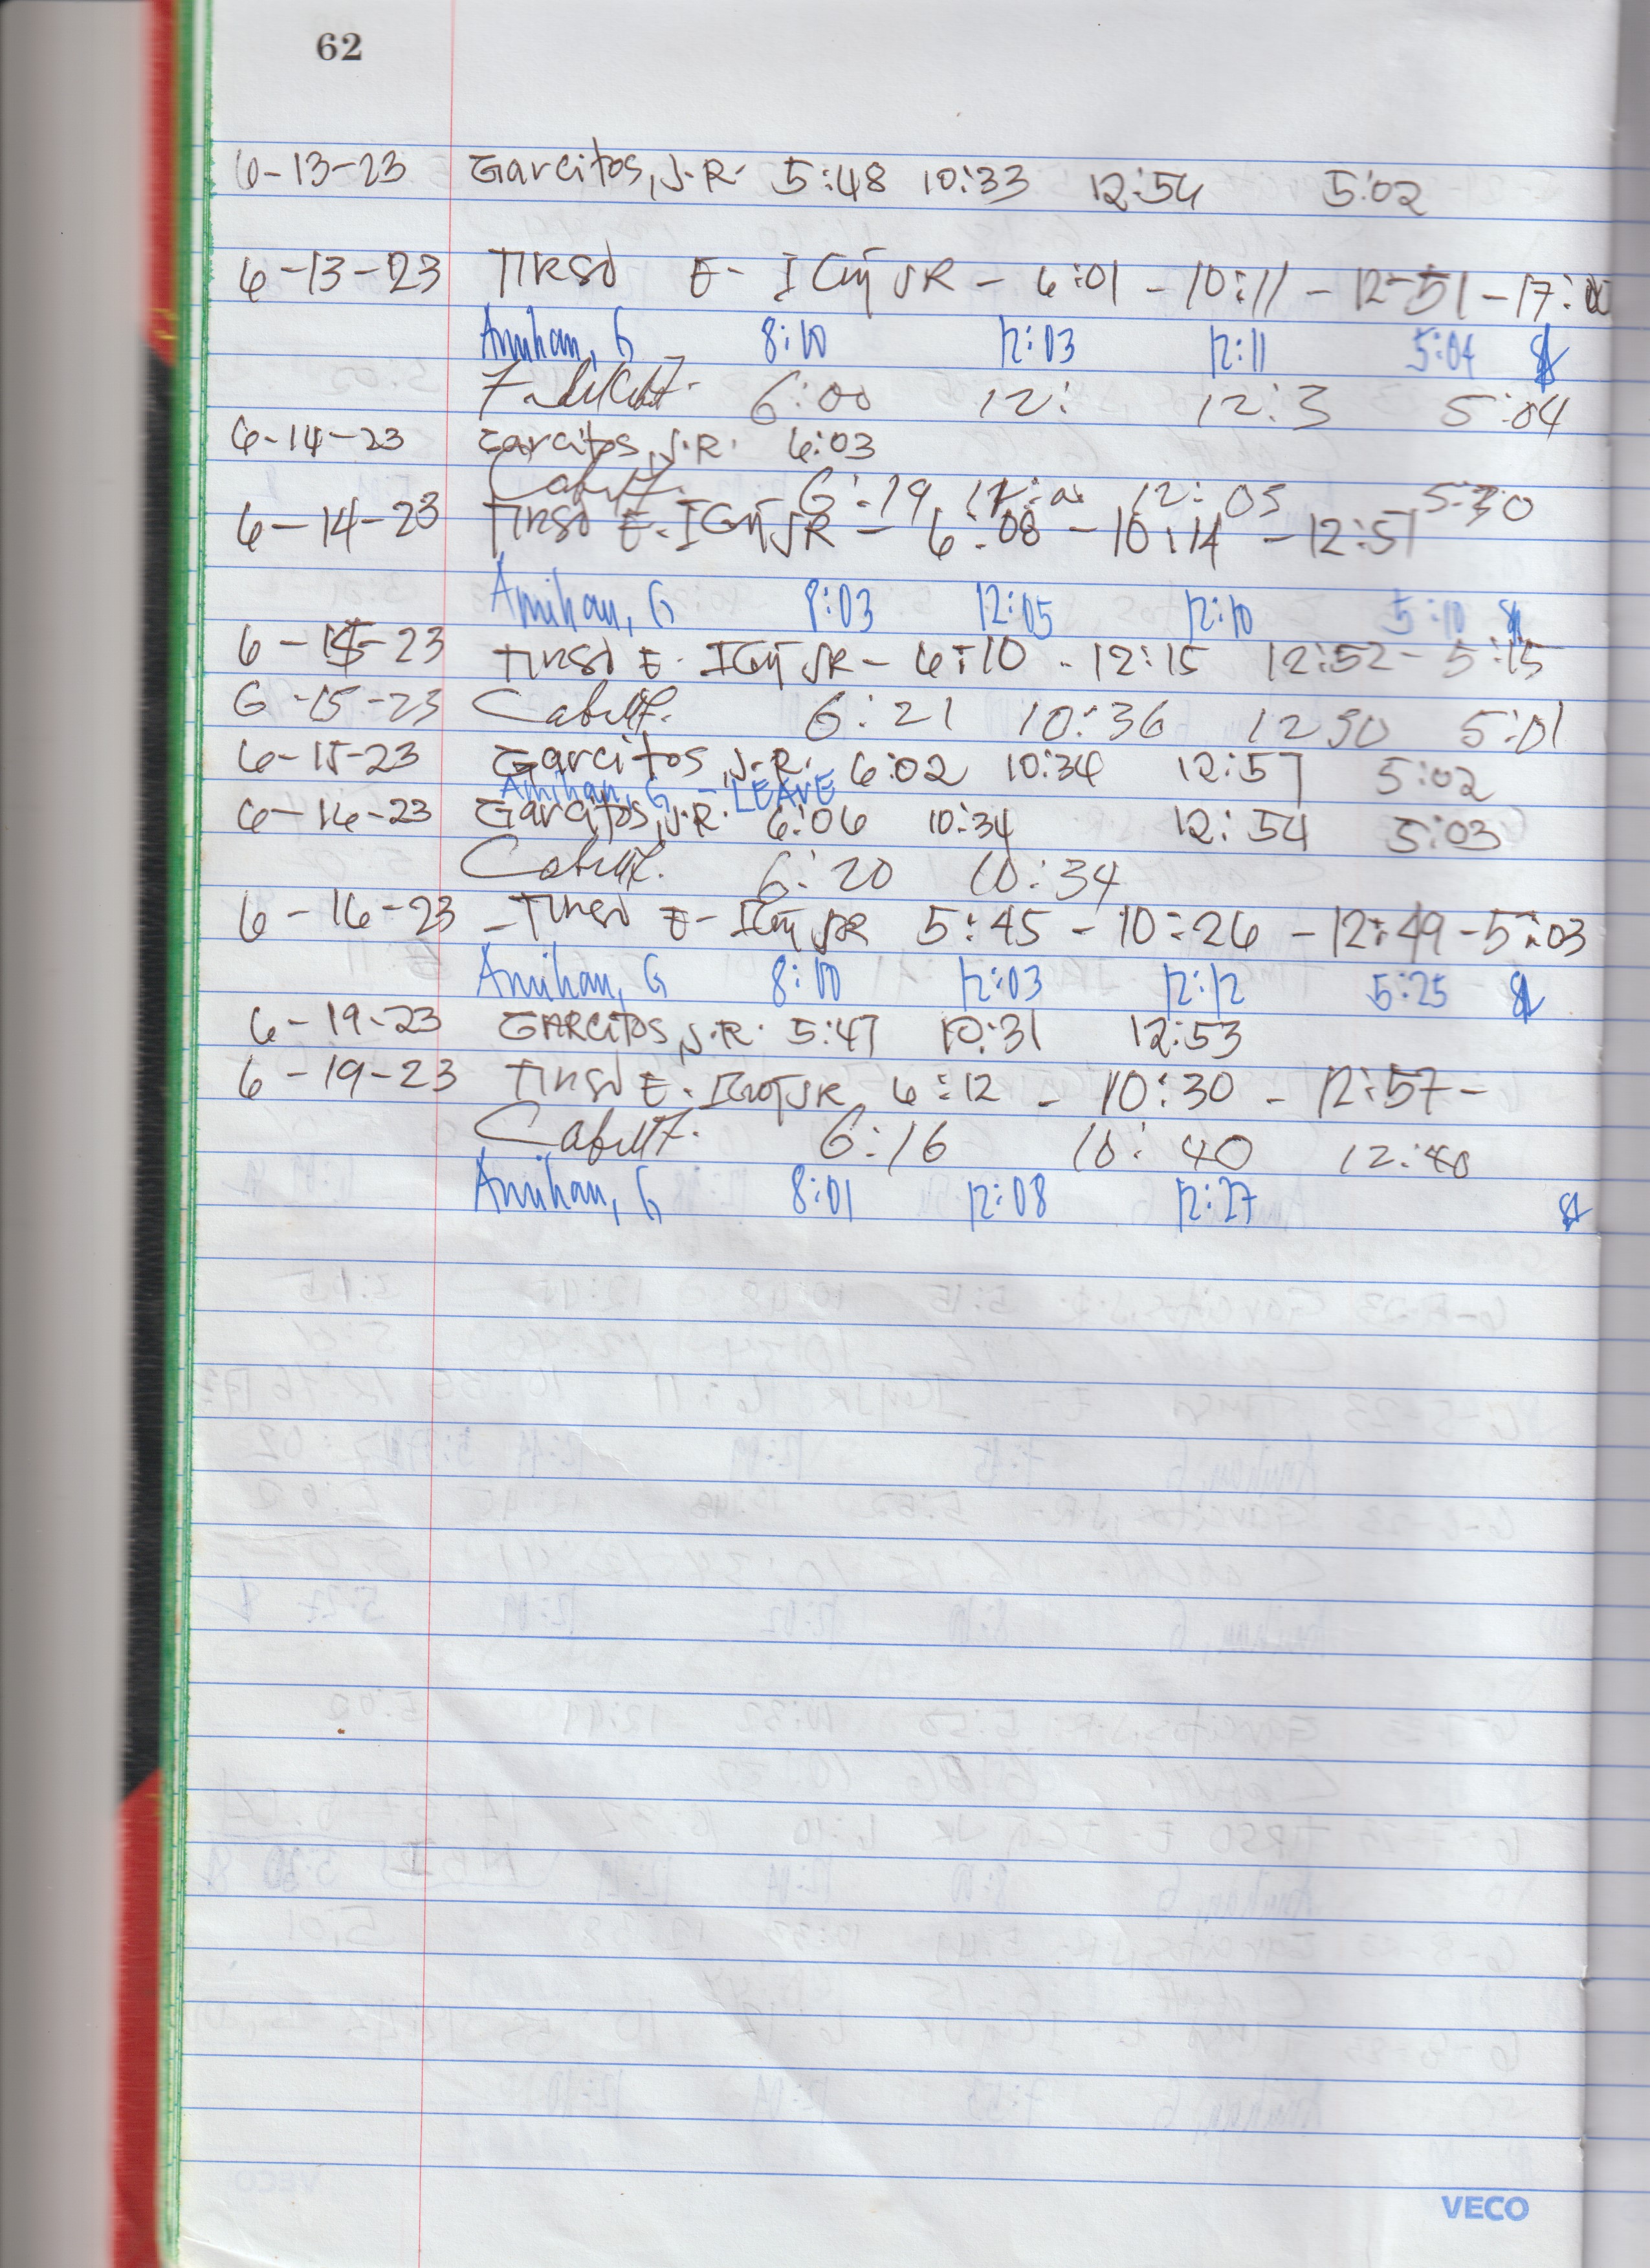 62
6-13-23 Garcitos, J.R. 5:48 10:33 12:54 5:02
6-13-23 TIRSO E- IGOT JR - 6:01 - 10:11 - 12-51 - 17:00
Amihan, G 8:10 12:03 12:11 5:04
6:00 12: 12:3 5:04
6-14-23 Garcitos, J.R. 6:03
6:19 12: 12:05 5:30
6-14-23 TIRSO E. IGOT JR - 6:08 - 10:14 - 12:51
Amihan, G 8:03 12:05 12:10 5:10
6-15-23 TIRSO E. IGOT JR - 6:10 - 12:15 12:52 - 5:15
6-15-23 6:21 10:36 12 30 5:01
6-15-23 Garcitos, J.R. 6:02 10:34 12:57 5:02
Amihan, G - LEAVE
6-16-23 Garcitos, J.R. 6:06 10:34 12:54 5:03
6:20 10:34
6-16-23 - TIRSO E- IGOT JR 5:45 - 10:26 - 12:49 - 5:03
Amihan, G 8:10 12:03 12:12 5:25
6-19-23 GARCITOS, J.R. 5:47 10:31 12:53
6-19-23 TIRSO E. IGOT JR 6:12 - 10:30 - 12:57 -
6:16 10:40 12:40
Amihan, G 8:01 12:08 12:27
VECO